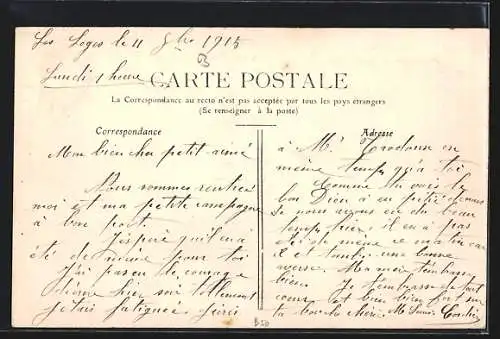 Les Loges le 11 8bre 1915
Lundi 1 heure
CARTE POSTALE
La Correspondance au recto n'est pas acceptée par tous les pays étrangers
(Se renseigner à la poste)
Correspondance
Mon bien cher petit aimé
Nous sommes rentrés
moi et ma petite compagne
à bon port.
J'espère qu'il en a
été de même pour toi
J'ai pas eu le courage
hier soir tellement
j'étais fatiguée
Adresse
à Mr en
même temps qu'à toi
Comme tu vois le
bon Dieu a eu pitié de nous
nous avons eu du beau
temps hier, il en a pas
été de même ce matin car
il est tombé une bonne
averse. Ma mère t'embrasse
bien. Je t'embrasse de tout
cœur et bien bien fort sur
ta bouche chérie. Mle
B50